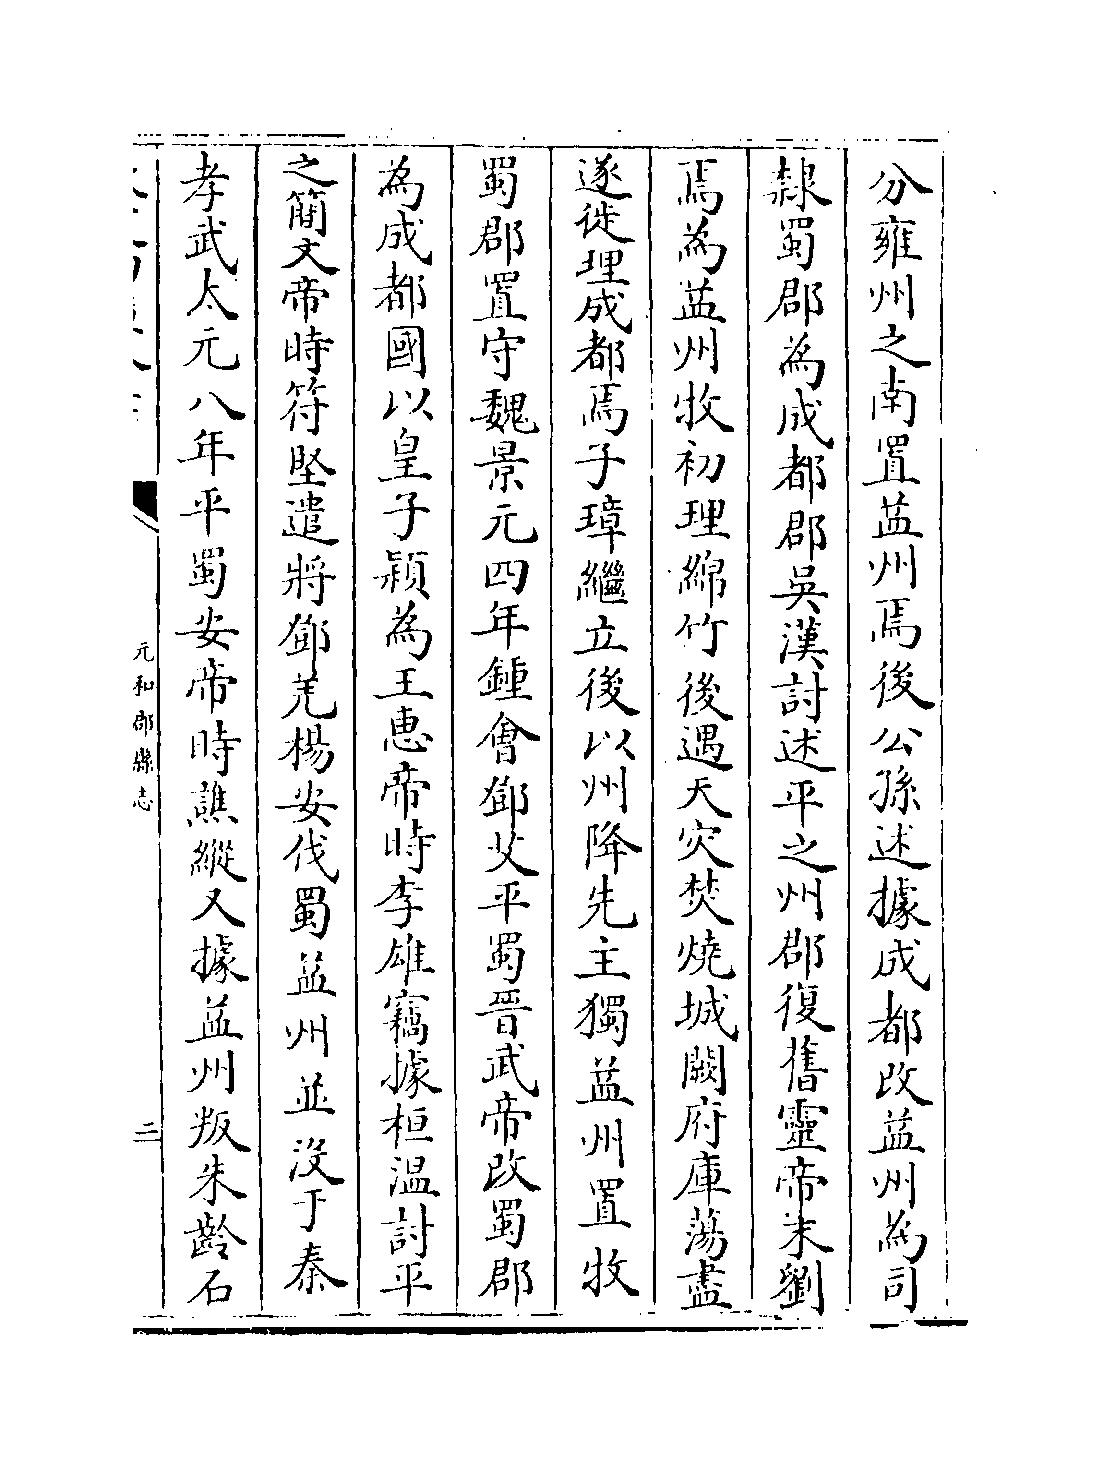 分雍州之南置益州焉後公孫述據成都改益州為司
隸蜀郡為成都郡吳漢討述平之州郡復舊靈帝末劉
焉為益州牧初理綿竹後遇天灾焚燒城闕府庫蕩盡
遂徙理成都焉子璋繼立後以州降先主獨益州置牧
蜀郡置守魏景元四年鍾會鄧艾平蜀晉武帝改蜀郡
為成都國以皇子穎為王惠帝時李雄竊據桓温討平
之簡文帝時符堅遣將鄧羌楊安伐蜀益州並没于秦
孝武太元八年平蜀安帝時譙縱又據益州叛朱齡石
元和郡縣志
二